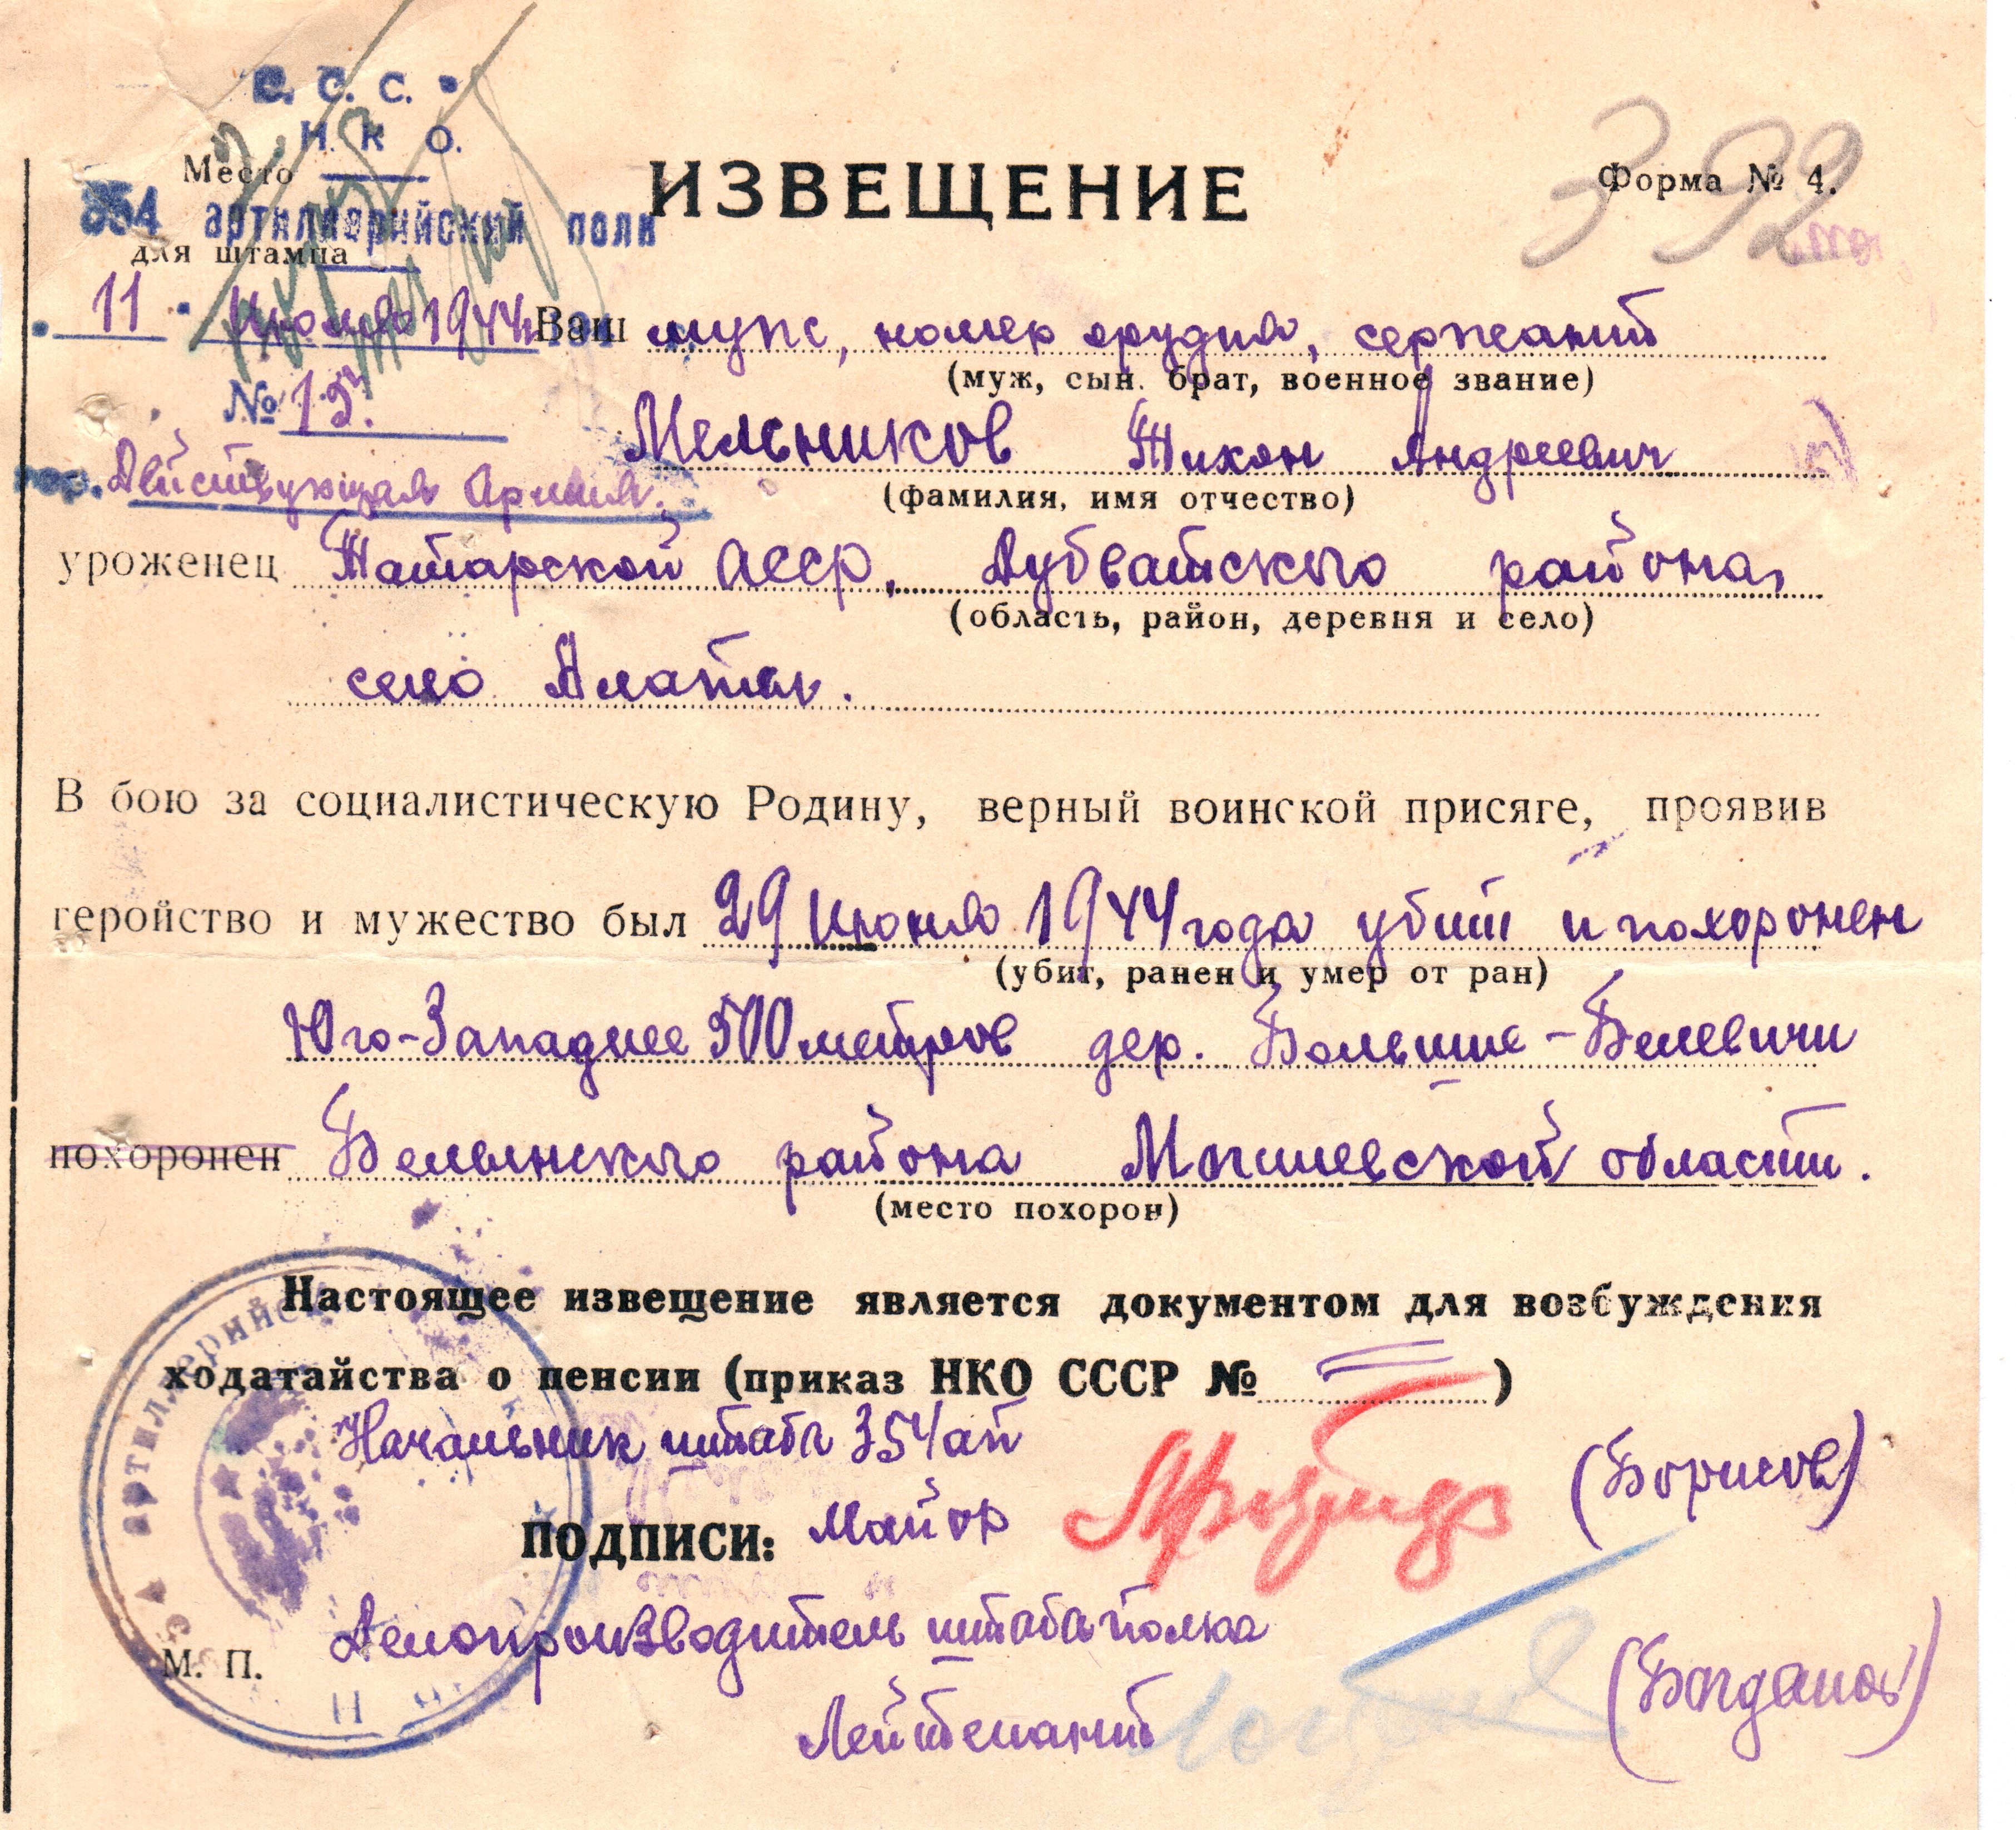 С. С. С.
Н К О.
Место
354 артиллерийский полк
для штампа
ИЗВЕЩЕНИЕ
Форма № 4.
392
11 Июля 1944
Ваш муж, номер орудия, сержант
(муж, сын. брат, военное звание)
№ 15.
Мельников Тихон Андреевич
гор. Действующая Армия.
(фамилия, имя отчество)
уроженец Татарской АССР, Дубватского района,
(область, район, деревня и село)
село Алатли.
В бою за социалистическую Родину, верный воинской присяге, проявив
геройство и мужество был 29 Июня 1944 года убит и похоронен
(убит, ранен и умер от ран)
Юго-Западнее 500 метров дер. Большие-Белевичи
похоронен Белынского района Могилевской области.
(место похорон)
Настоящее извещение является документом для возбуждения
ходатайства о пенсии (приказ НКО СССР № )
Начальник штаба 354 ап
ПОДПИСИ: Майор (Борисов)
Делопроизводитель штаба полка
М. П.
Лейтенант (Богданов)